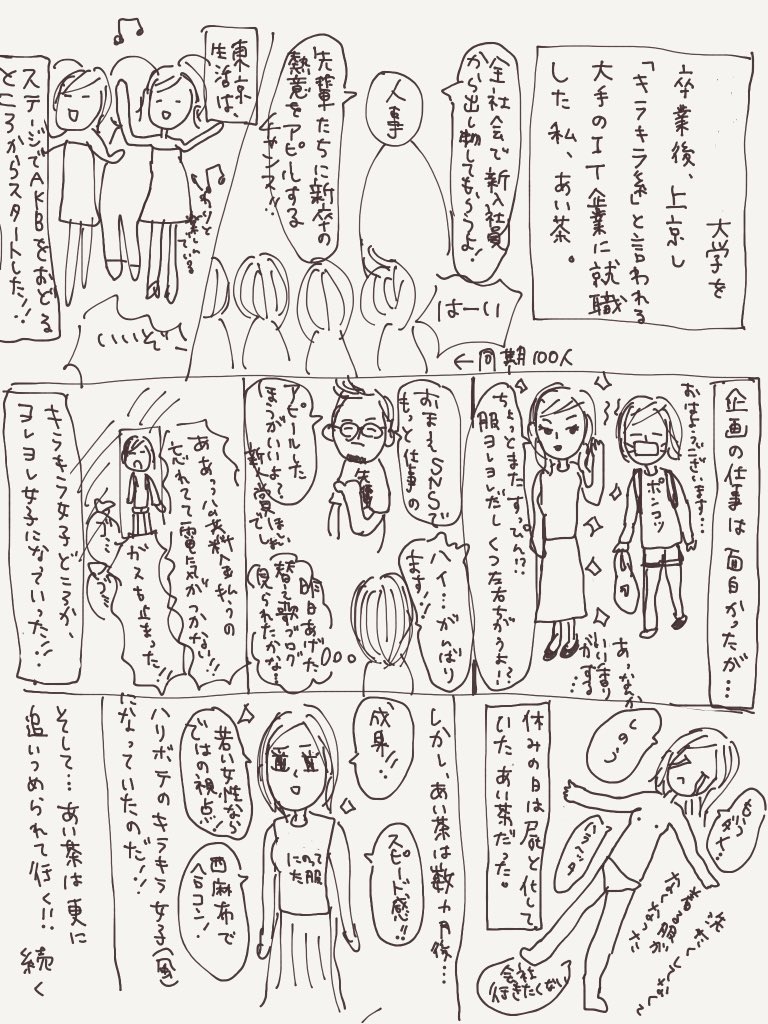 大学を
卒業後、上京し
「キラキラ系」と言われる
大手のIT企業に就職
した私、あい茶。
全社会で新入社員
から出し物してもらうよ!
人事
先輩たちに新卒の
熱意をアピールする
チャンス!!
はーい
←同期100人
東京
生活は、
わりと
楽しん
でいる
ステージでAKBをおどる
ところからスタートした!!
いいぞー
企画の仕事は面白かったが…
おはようございます…
ポンコツ
ちょっとまたすっぴん!?
服ヨレヨレだしくつ左右ちがうよ!?
おまえSNSで
もっと仕事の
アピールした
ほうがいいよ?
先輩
ハイ…がんばり
ます!!
昨日あげた
替え歌ブログ
見られたかな…
ああっ公共料金払うの
忘れてて電気がつかない!!
ガスも止まった!!
ゴミ…
ゴミ…
キラキラ女子どころか、
ヨレヨレ女子になっていった!!
休みの日は屍と化して
いたあい茶だった。
もうダメだ…
会社
行きたくない
しかし、あい茶は数カ月後…
成果!!
スピード感!!
若い女性なら
ではの視点!
西麻布で
合コン!
にのって
た服
ハリボテのキラキラ女子(風)
になっていたのだ!!
そして…あい茶は更に
追いつめられて行く!!
続く